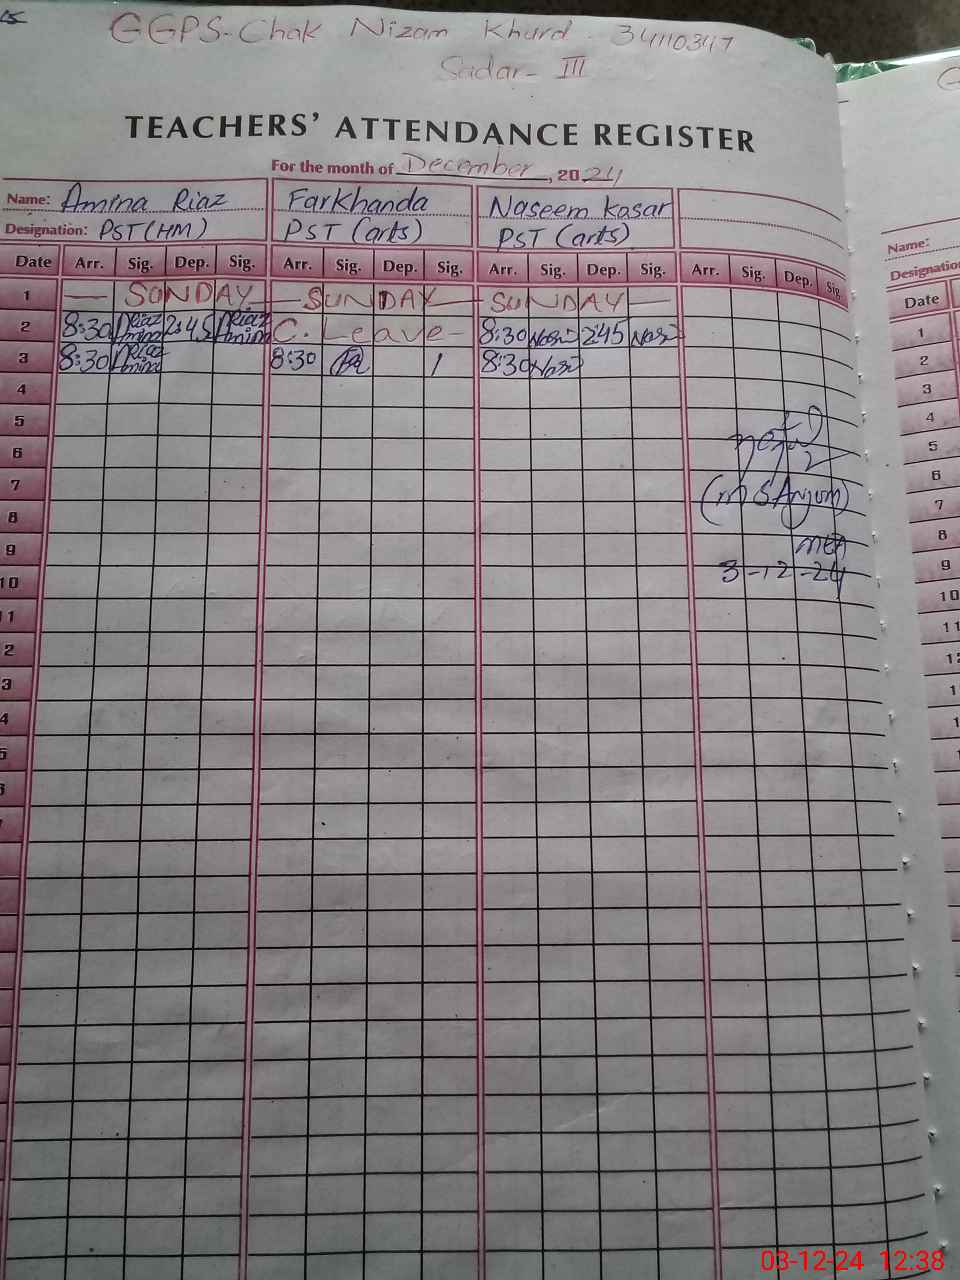 GGPS-Chak Nizam Khurd - 34110347
Sadar- III
TEACHERS' ATTENDANCE REGISTER
For the month of December, 2024
Name: Amina Riaz Farkhanda Naseem Kosar
Designation: PST(HM) PST (arts) PST (arts)
Date Arr. Sig. Dep. Sig. Arr. Sig. Dep. Sig. Arr. Sig. Dep. Sig. Arr. Sig. Dep. Sig.
1 — SUNDAY — SUNDAY — SUNDAY —
2 8:30 Riaz Amina 2:45 Riaz Amina C. Leave - 8:30 2:45
3 8:30 Riaz Amina 8:30 8:30
4
5
6
7
(m S Anjum)
8
9
3-12-24
10
11
2
3
4
5
Name:
Designation
Date
1
2
3
4
5
6
7
8
9
10
11
03-12-24 12:38